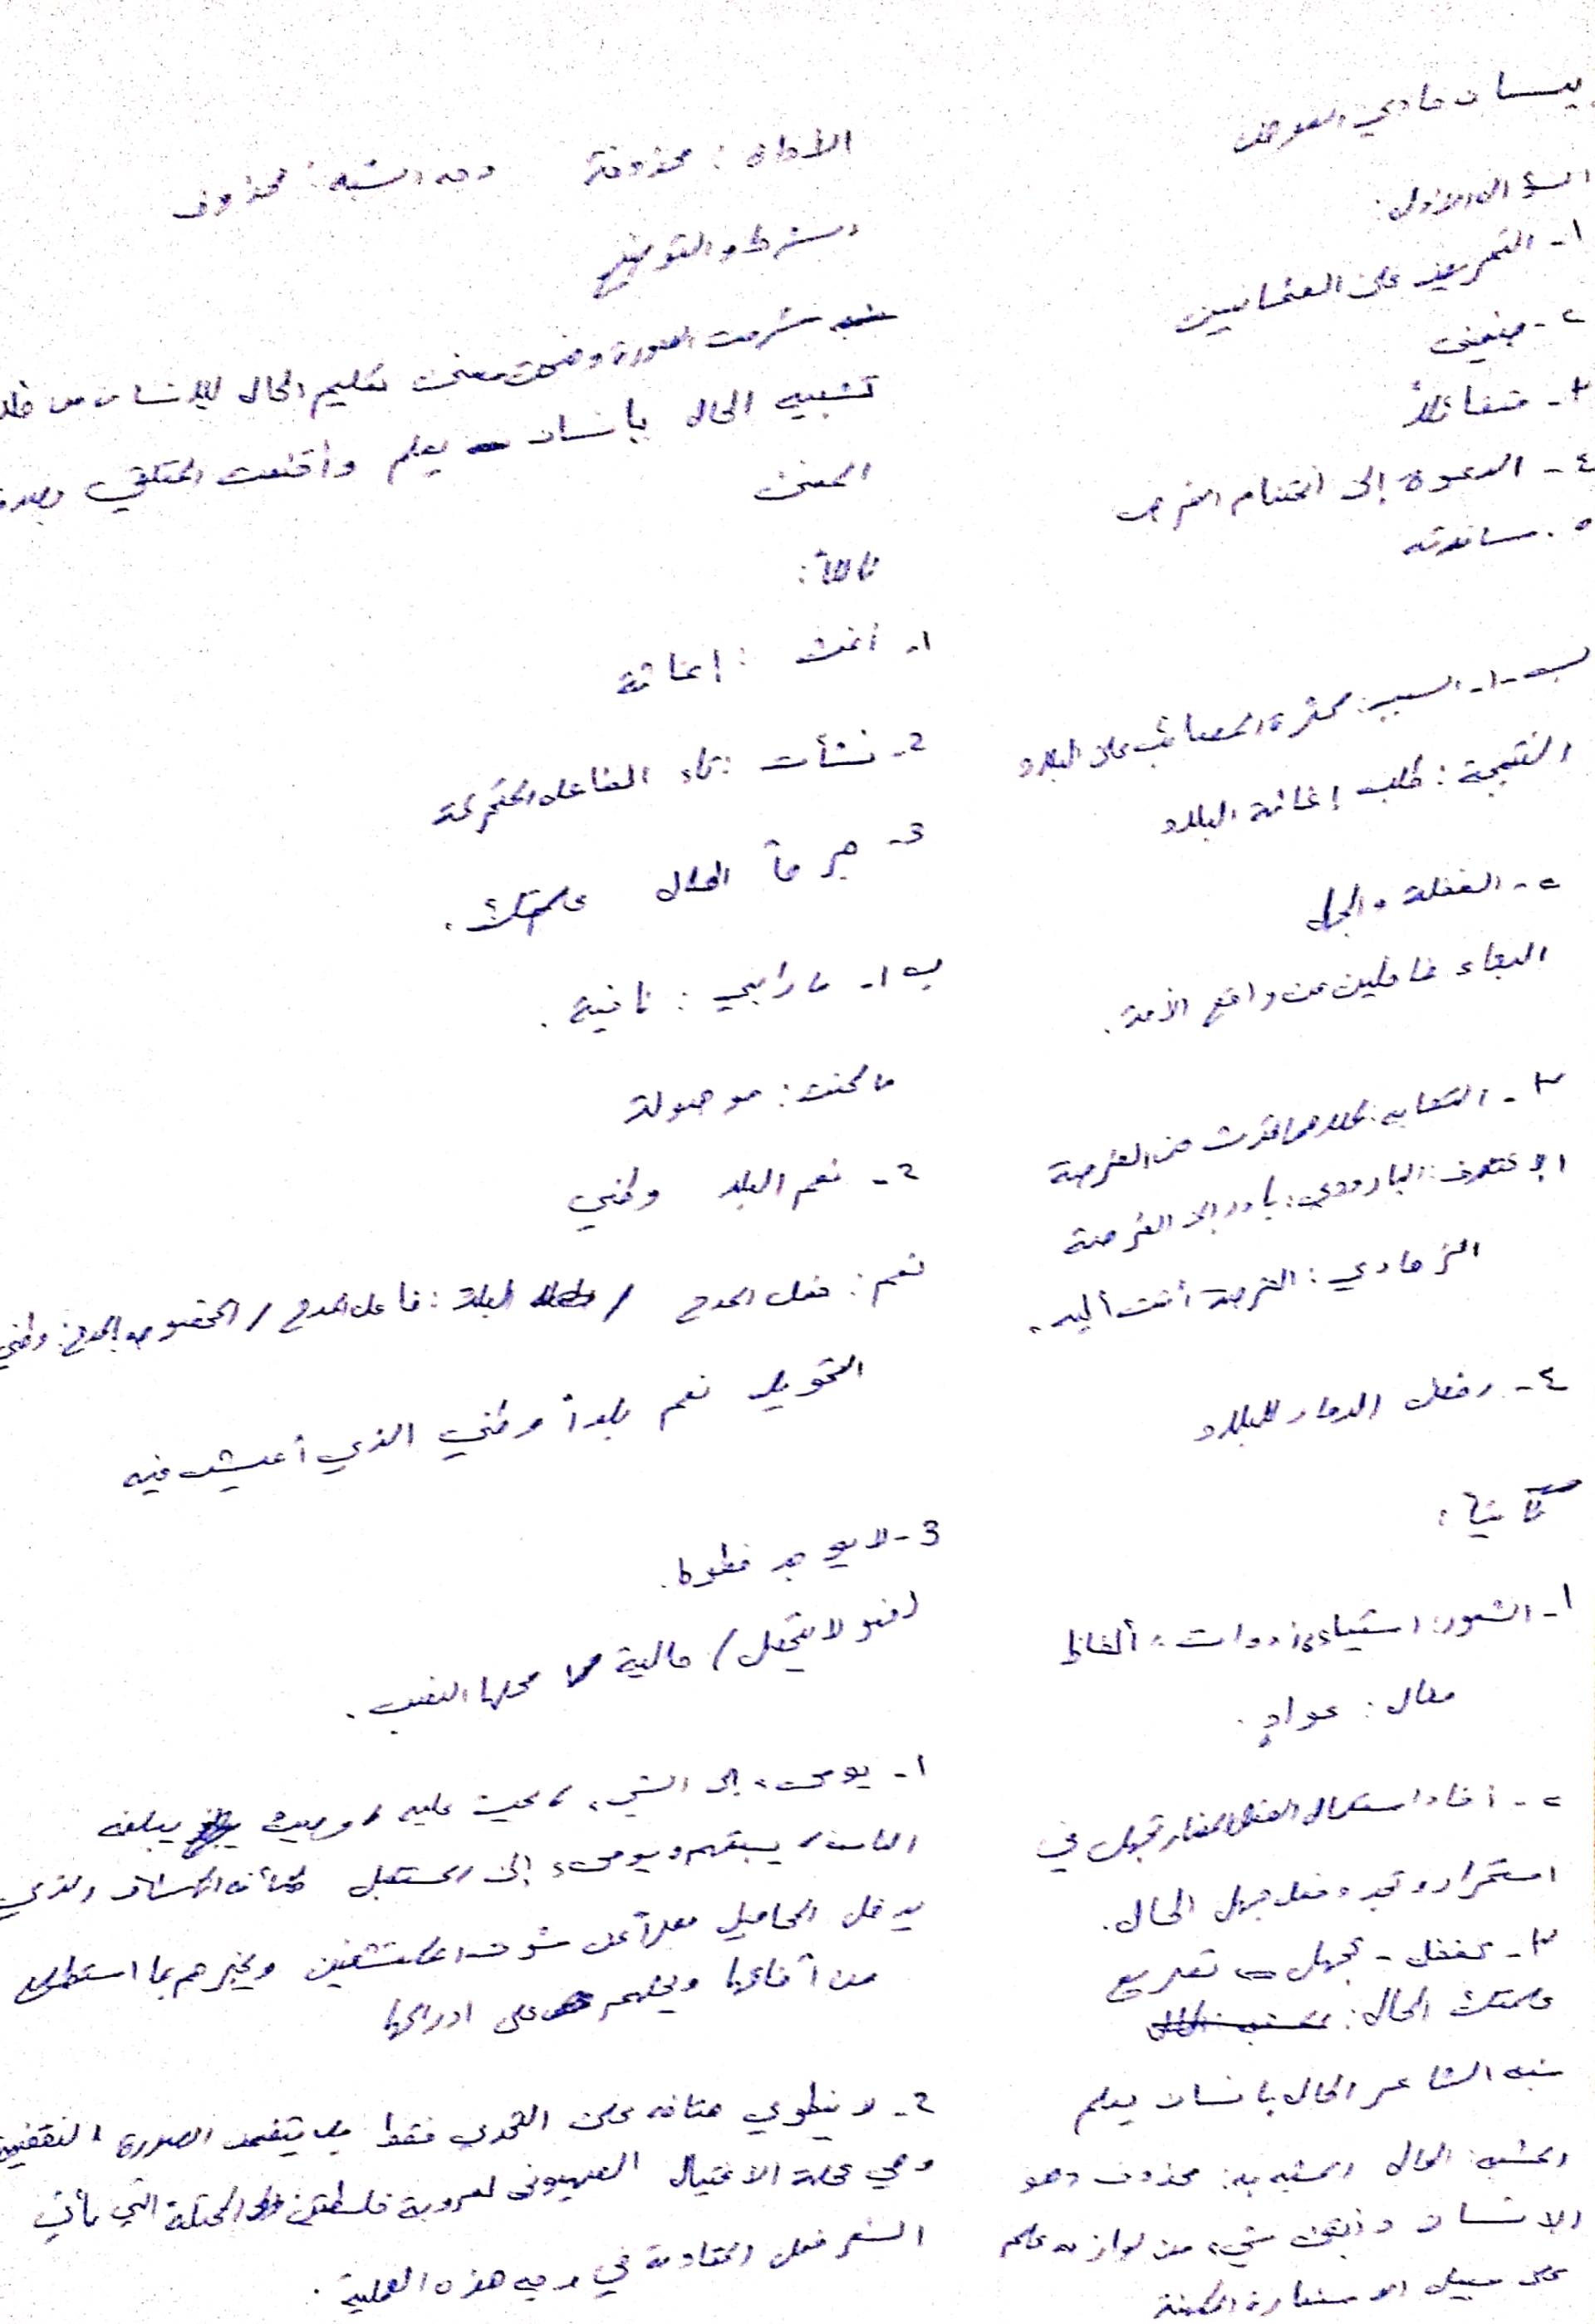 بيسان هادي العوض
السؤال الأول:
١- التحريض على العثمانيين
٢- يبتغى
٣- متفائلاً
٤- الدعوة إلى اغتنام الفرص
٥. مساندته
ب-١- السبب: كثرة المصائب على البلاد
النتيجة: طلب إغاثة البلاد
٢- الغفلة والجهل
البقاء غافلين عن واقع الأمة.
٣- التشابه: كلاهما تحدث عن الفرصة
الاختلاف: البارودي: بادر إلى الفرصة
الزهاوي: الفرصة أتت إليه.
٤- رفض الدمار للبلاد
ثانياً:
١- الشعور: استياء، أدوات: ألفاظ
مثال: عوادٍ.
٢- أفاد استعمال الفعل المضارع تجهل في
استمرار وتجدد فعل جهل الحال.
٣- تغفل - تجهل = تصريع
علمتك الحال:
شبه الشاعر الحال بإنسان يعلم
المشبه: الحال المشبه به: محذوف وهو
الإنسان وأبقى شيء من لوازمه علم
على سبيل الاستعارة المكنية
الأداة: محذوفة وجه الشبه: محذوف
الشرح والتوضيح
شرحت الصورة وضحت معنى تعليم الحال للإنسان من خلال
تشبيه الحال بإنسان يعلم وأقنعت المتلقي بصدق
المعنى
ثالثاً:
١- أغث: إغاثة
2- نشأت: تاء الفاعل المتحركة
3- جرماً الحال علمتك.
ب ١- ما رابني: نافية.
ما كنت: موصولة
٢- نعم البلد وطني
نعم: فعل المدح / البلد: فاعل المدح / المخصوص بالمدح: وطني
التحويل نعم بلداً وطني الذي أعيش فيه
3- لا يوجد
(فهو لا يتحمل) حالية محلها النصب.
١- يومىء إلى الشيء، يحث عليه، يبلغه
الناس، يسبقهم ويومىء إلى المستقبل كأنه الكشاف الذي
يدخل المجاهيل معبراً عن شوق المكتشفين ويخبرهم بما استطلع
من آفاقها ويحملهم على ادراكها
2- لا ينطوي هتافه على التحدي فقط بل يتضمن الصورة النقيضة
وهي عملة الاغتيال الصهيوني لعروبة فلسطين المحتلة التي يأتي
الشعر فعل المقاومة في وجه هذه العملية.